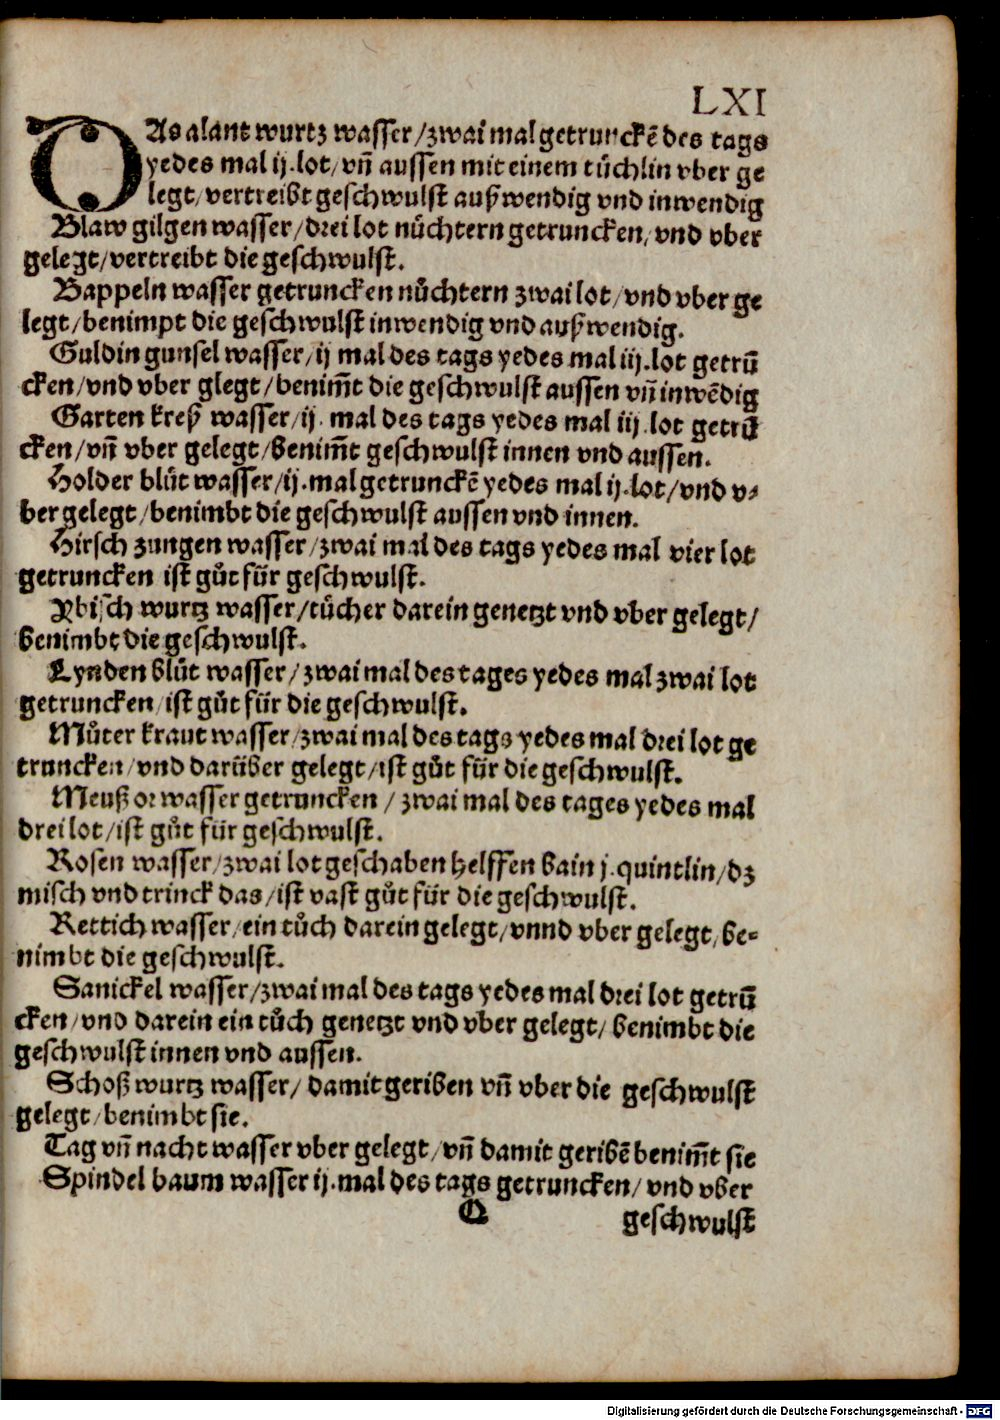 LXI
DAs alant wurtz wasser/zwai mal getrunckē des tags
yedes mal ij.lot/vñ aussen mit einem tůchlin vber ge
legt/vertreibt geschwulst außwendig vnd inwendig
Blaw gilgen wasser/drei lot nůchtern getruncken/vnd vber
gelegt/vertreibt die geschwulst.
Bappeln wasser getruncken nůchtern zwai lot/vnd vber ge
legt/benimpt die geschwulst inwendig vnd außwendig.
Guldin gunsel wasser/ij mal des tags yedes mal iij.lot getrū
cken/vnd vber glegt/benim̄t die geschwulst aussen vñ inwēdig
Garten kreß wasser/ij. mal des tags yedes mal iij.lot getrū
cken/vñ vber gelegt/benim̄t geschwulst innen vnd aussen.
Holder blůt wasser/ij.mal getrunckē yedes mal ij.lot/vnd v⸗
ber gelegt/benimbt die geschwulst aussen vnd innen.
Hirsch zungen wasser/zwai mal des tags yedes mal vier lot
getruncken ist gůt für geschwulst.
Ybisch wurtz wasser/tůcher darein genetzt vnd vber gelegt/
benimbt die geschwulst.
Lynden blůt wasser/zwai mal des tages yedes mal zwai lot
getruncken/ist gůt für die geschwulst.
Můter kraut wasser/zwai mal des tags yedes mal drei lot ge
truncken/vnd darüber gelegt/ist gůt für die geschwulst.
Meuß or wasser getruncken/zwai mal des tages yedes mal
drei lot/ist gůt für geschwulst.
Rosen wasser/zwai lot geschaben helffen bain j.quintlin/dz
misch vnd trinck das/ist vast gůt für die geschwulst.
Rettich wasser/ein tůch darein gelegt/vnnd vber gelegt/be⸗
nimbt die geschwulst.
Sanickel wasser/zwai mal des tags yedes mal drei lot getrū
cken/vnd darein ein tůch genetzt vnd vber gelegt/benimbt die
geschwulst innen vnd aussen.
Schoß wurtz wasser/damit geriben vñ vber die geschwulst
gelegt/benimbt sie.
Tag vñ nacht wasser vber gelegt/vñ damit geribē benim̄t sie
Spindel baum wasser ij.mal des tags getruncken/vnd vber
Q geschwulst
Digitalisierung gefördert durch die Deutsche Forschungsgemeinschaft - DFG